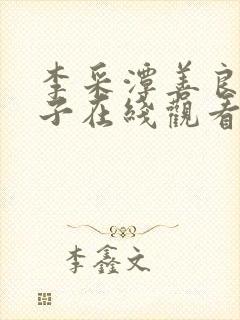 李采潭善良
子在綫觀看
李鑫文